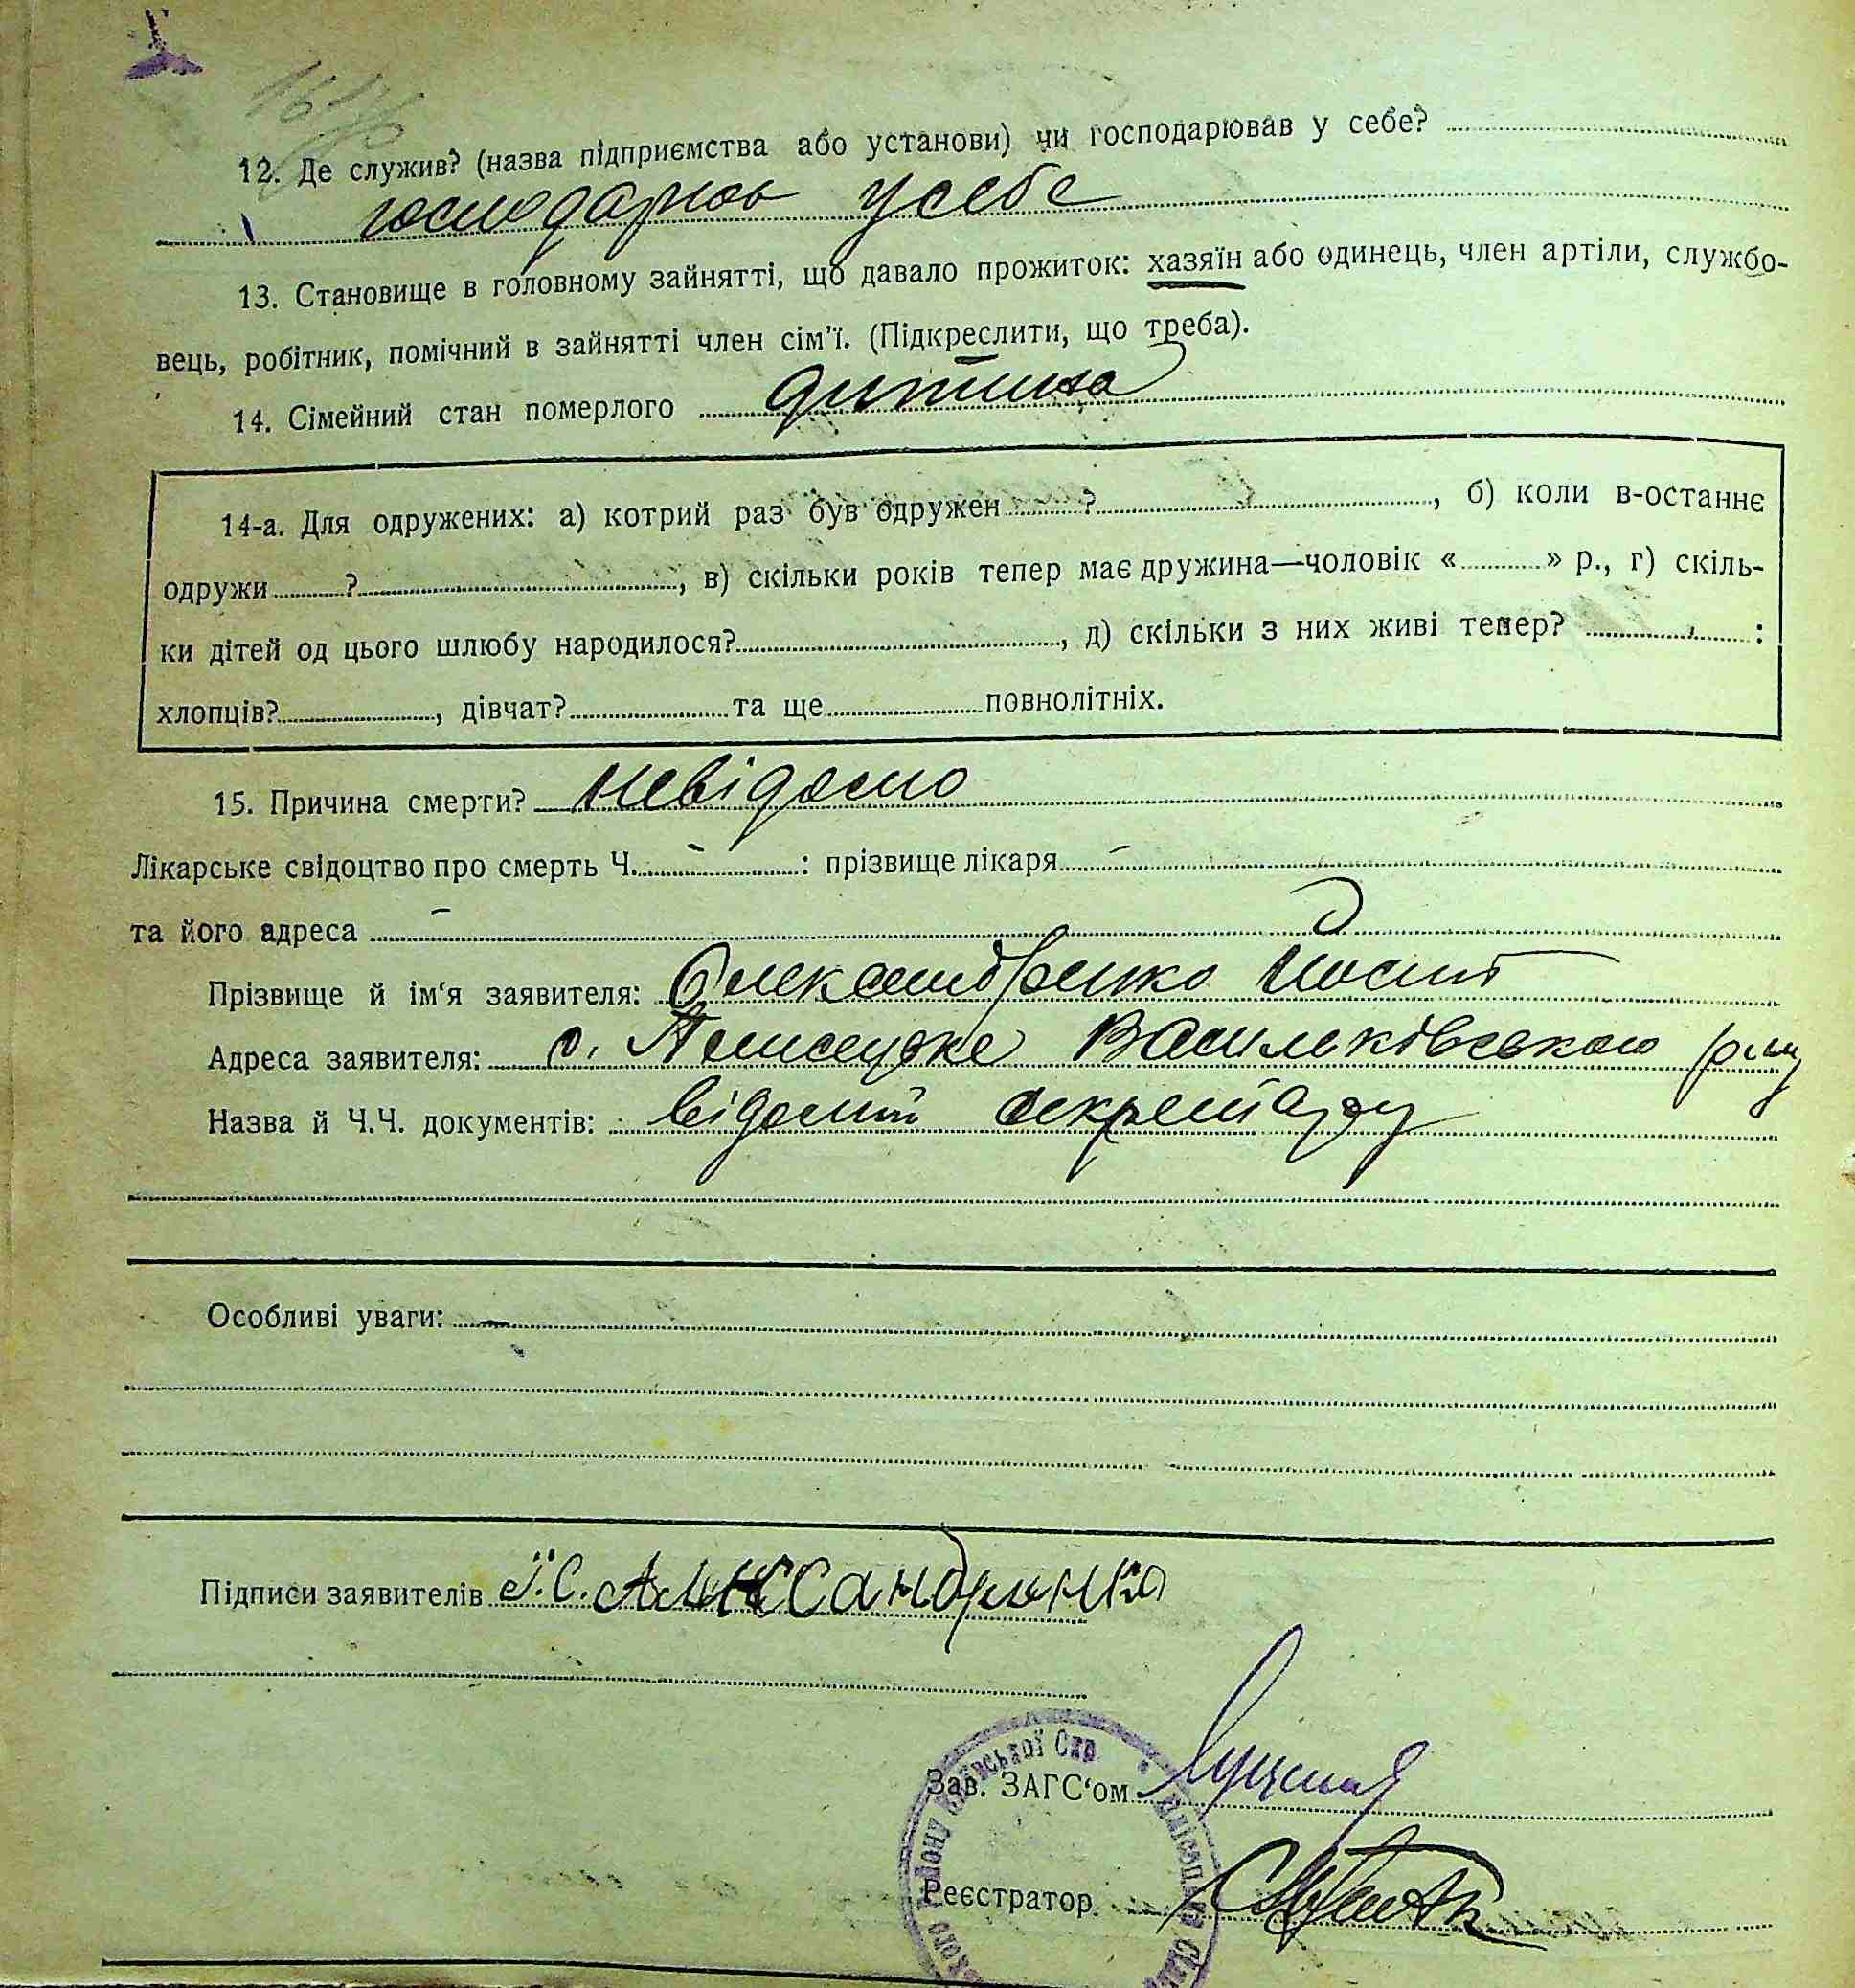 12. Де служив? (назва підприємства або установи) чи господарював у себе?
господарюв у себе
13. Становище в головному зайнятті, що давало прожиток: хазяїн або одинець, член артіли, службо-
вець, робітник, помічний в зайнятті член сім'ї. (Підкреслити, що треба).
14. Сімейний стан померлого дитина
14-а. Для одружених: а) котрий раз був одружен ? , б) коли в-останнє
одружи ? , в) скільки років тепер має дружина—чоловік « » р., г) скіль-
ки дітей од цього шлюбу народилося? , д) скільки з них живі тепер? :
хлопців? , дівчат? та ще повнолітніх.
15. Причина смерти? невідомо
Лікарське свідоцтво про смерть Ч. – : прізвище лікаря –
та його адреса –
Прізвище й ім'я заявителя: Олександренко Йосип
Адреса заявителя: с. Васильківського
Назва й Ч.Ч. документів: відомий секретару
Особливі уваги: –
Підписи заявителів І. С. Аликсандринко
Зав. ЗАГС'ом
Реєстратор